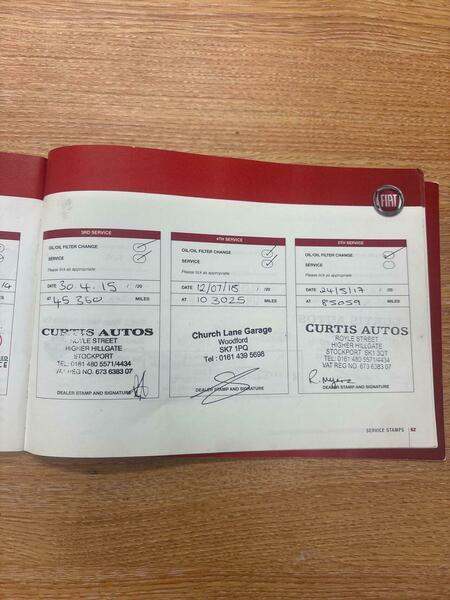 FIAT
3RD SERVICE
OIL/OIL FILTER CHANGE
SERVICE
Please tick as appropriate
DATE 30.4.15 / /20
AT 45360 MILES
CURTIS AUTOS
ROYLE STREET
HIGHER HILLGATE
STOCKPORT
TEL: 0161 480 5571/4434
VAT REG NO. 673 6383 07
DEALER STAMP AND SIGNATURE
4TH SERVICE
OIL/OIL FILTER CHANGE
SERVICE
Please tick as appropriate
DATE 12/07/18 / /20
AT 103025 MILES
Church Lane Garage
Woodford
SK7 1PQ
Tel : 0161 439 5698
DEALER STAMP AND SIGNATURE
5TH SERVICE
OIL/OIL FILTER CHANGE
SERVICE
Please tick as appropriate
DATE 24/5/17 / /20
AT 85059 MILES
CURTIS AUTOS
ROYLE STREET
HIGHER HILLGATE
STOCKPORT SK1 3QT
TEL: 0161 480 5571/4434
VAT REG NO. 673 6383 07
R. Myers
DEALER STAMP AND SIGNATURE
SERVICE STAMPS 62